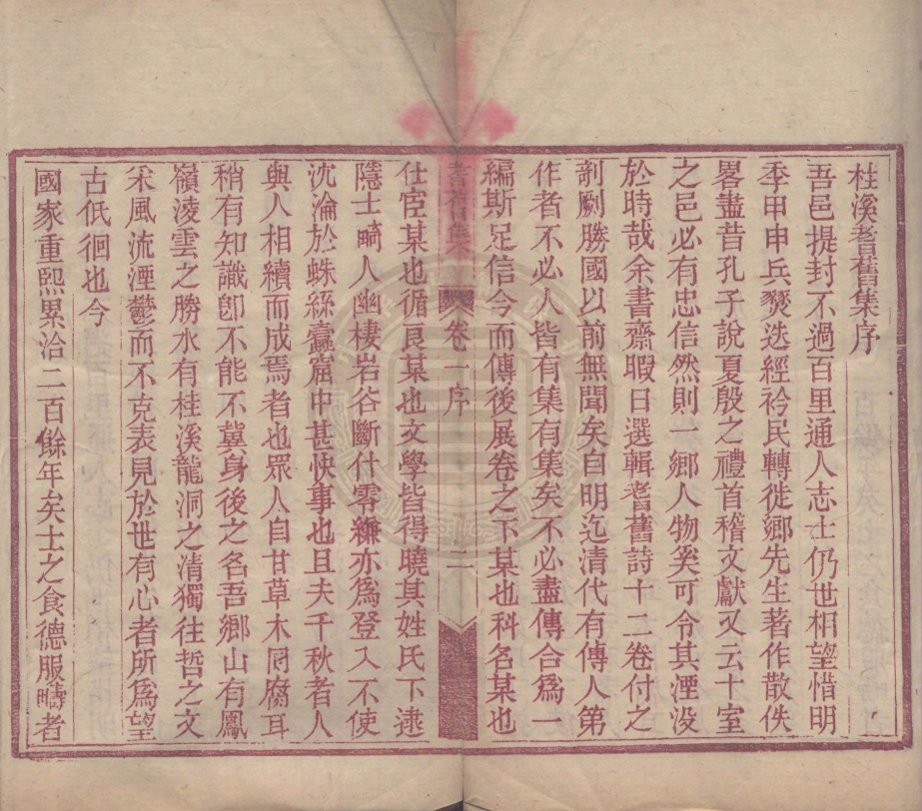 桂溪耆舊集序
吾邑提封不過百里通人志士仍世相望惜明
季甲申兵燹迭經衿民轉徙鄉先生著作散佚
畧盡昔孔子說夏殷之禮首稽文獻又云十室
之邑必有忠信然則一鄉人物奚可令其湮没
於時哉余書齋暇日選輯耆舊詩十二卷付之
剞劂勝國以前無聞矣自明迄清代有傳人第
作者不必人皆有集有集矣不必盡傳合爲一
編斯足信今而傳後展卷之下某也科名某也
耆舊集 卷一序 二
仕宦某也循良某也文學皆得曉其姓氏下逮
隱士畸人幽棲岩谷斷什零縑亦爲登入不使
沈淪於蛛絲蠹窟中甚快事也且夫千秋者人
與人相續而成焉者也眾人自甘草木同腐耳
稍有知識卽不能不冀身後之名吾鄉山有鳳
嶺淩雲之勝水有桂溪龍洞之清獨往哲之文
采風流湮鬱而不克表見於世有心者所爲望
古低徊也今
國家重熙累洽二百餘年矣士之食德服疇者